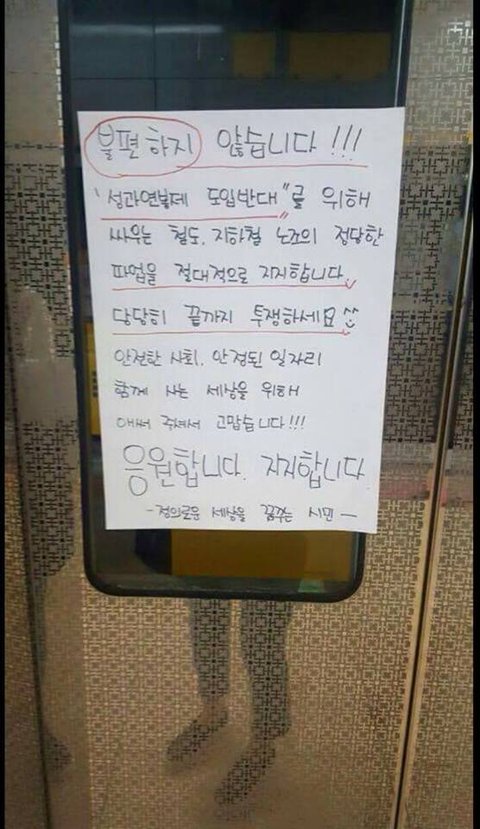 불편하지 않습니다!!!
"성과연봉제 도입반대"를 위해
싸우는 철도, 지하철 노조의 정당한
파업을 절대적으로 지지합니다.
당당히 끝까지 투쟁하세요
안전한 사회, 안정된 일자리
함께 사는 세상을 위해
애써 주셔서 고맙습니다!!!
응원합니다. 지지합니다
-정의로운 세상을 꿈꾸는 시민-